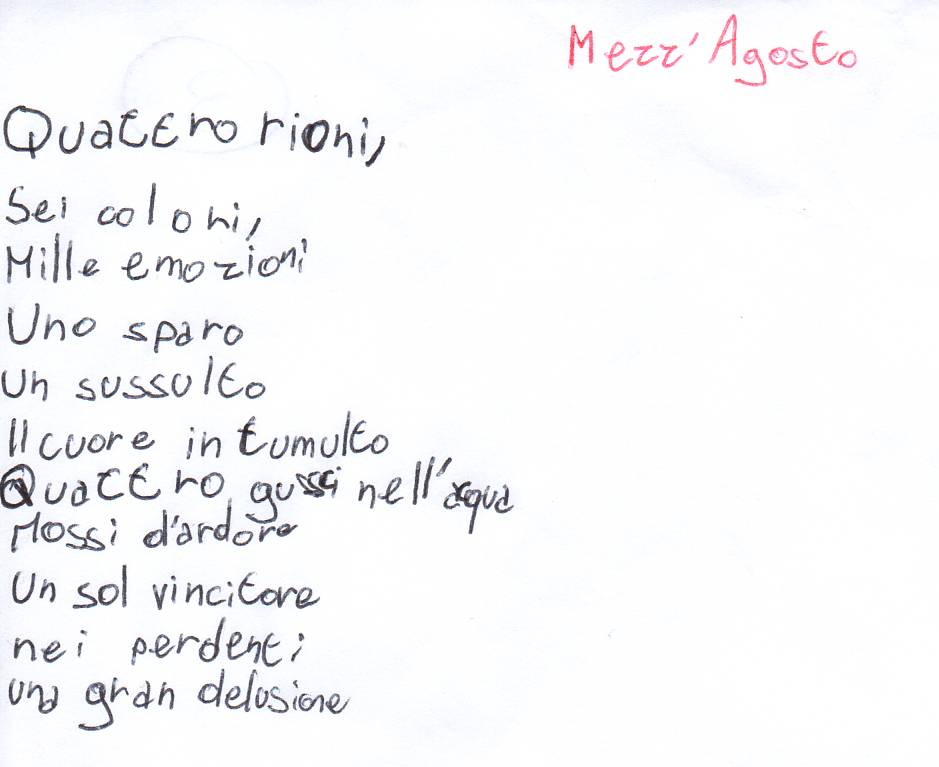 Mezz'Agosto
Quattro rioni,
Sei colori,
Mille emozioni
Uno sparo
Un sussulto
Il cuore in tumulto
Quattro gusci nell'acqua
Mossi d'ardore
Un sol vincitore
nei perdenti
una gran delusione